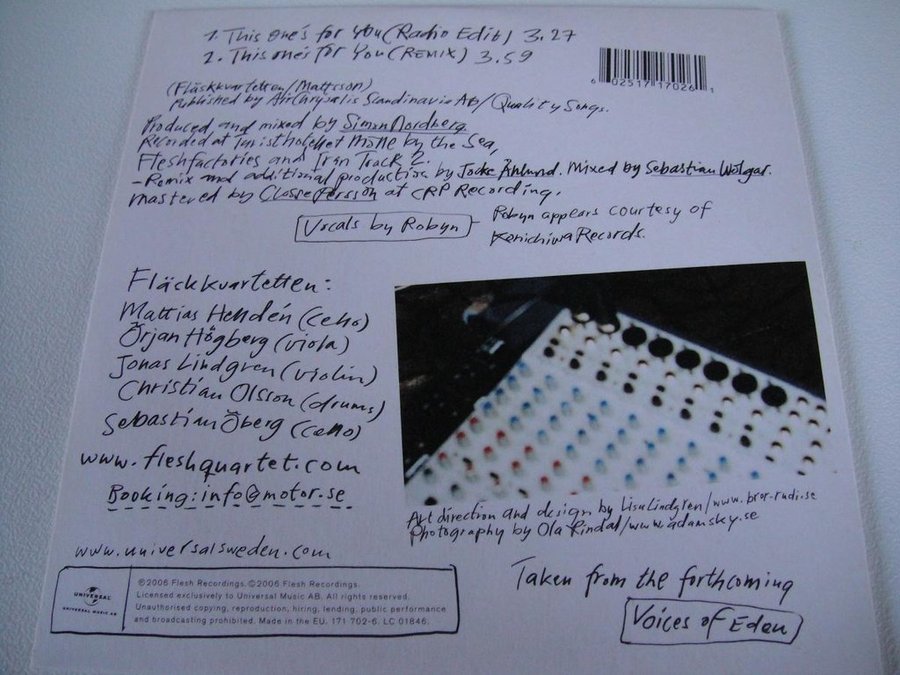 1. This one's for you (Radio Edit) 3.27
2. This one's for You (REMIX) 3.59
6 02517 17026 1
(Fläskkvartetten/Mattsson)
Published by Air Chrysalis Scandinavia AB/Quality Songs.
Produced and mixed by Simon Nordberg.
Recorded at Turisthotellet Mölle by the Sea,
Fleshfactories and Iron Track 2.
-Remix and additional production by Jocke Åhlund. Mixed by Sebastian Wolgar.
Mastered by Classe Persson at CRP Recording.
Vocals by Robyn
Robyn appears courtesy of
Konichiwa Records.
Fläckkvartetten:
Mattias Helldén (cello)
Örjan Högberg (viola)
Jonas Lindgren (violin)
Christian Olsson (drums)
Sebastian Öberg (cello)
www.fleshquartet.com
Booking: info@motor.se
www.universalsweden.com
Art direction and design by Lisa Lindgren/www.bror-rudi.se
Photography by Ola Rindal/www.adamsky.se
UNIVERSAL
UNIVERSAL MUSIC AB
℗2006 Flesh Recordings. ©2006 Flesh Recordings.
Licensed exclusively to Universal Music AB. All rights reserved.
Unauthorised copying, reproduction, hiring, lending, public performance
and broadcasting prohibited. Made in the EU. 171 702-6. LC 01846.
Taken from the forthcoming
Voices of Eden